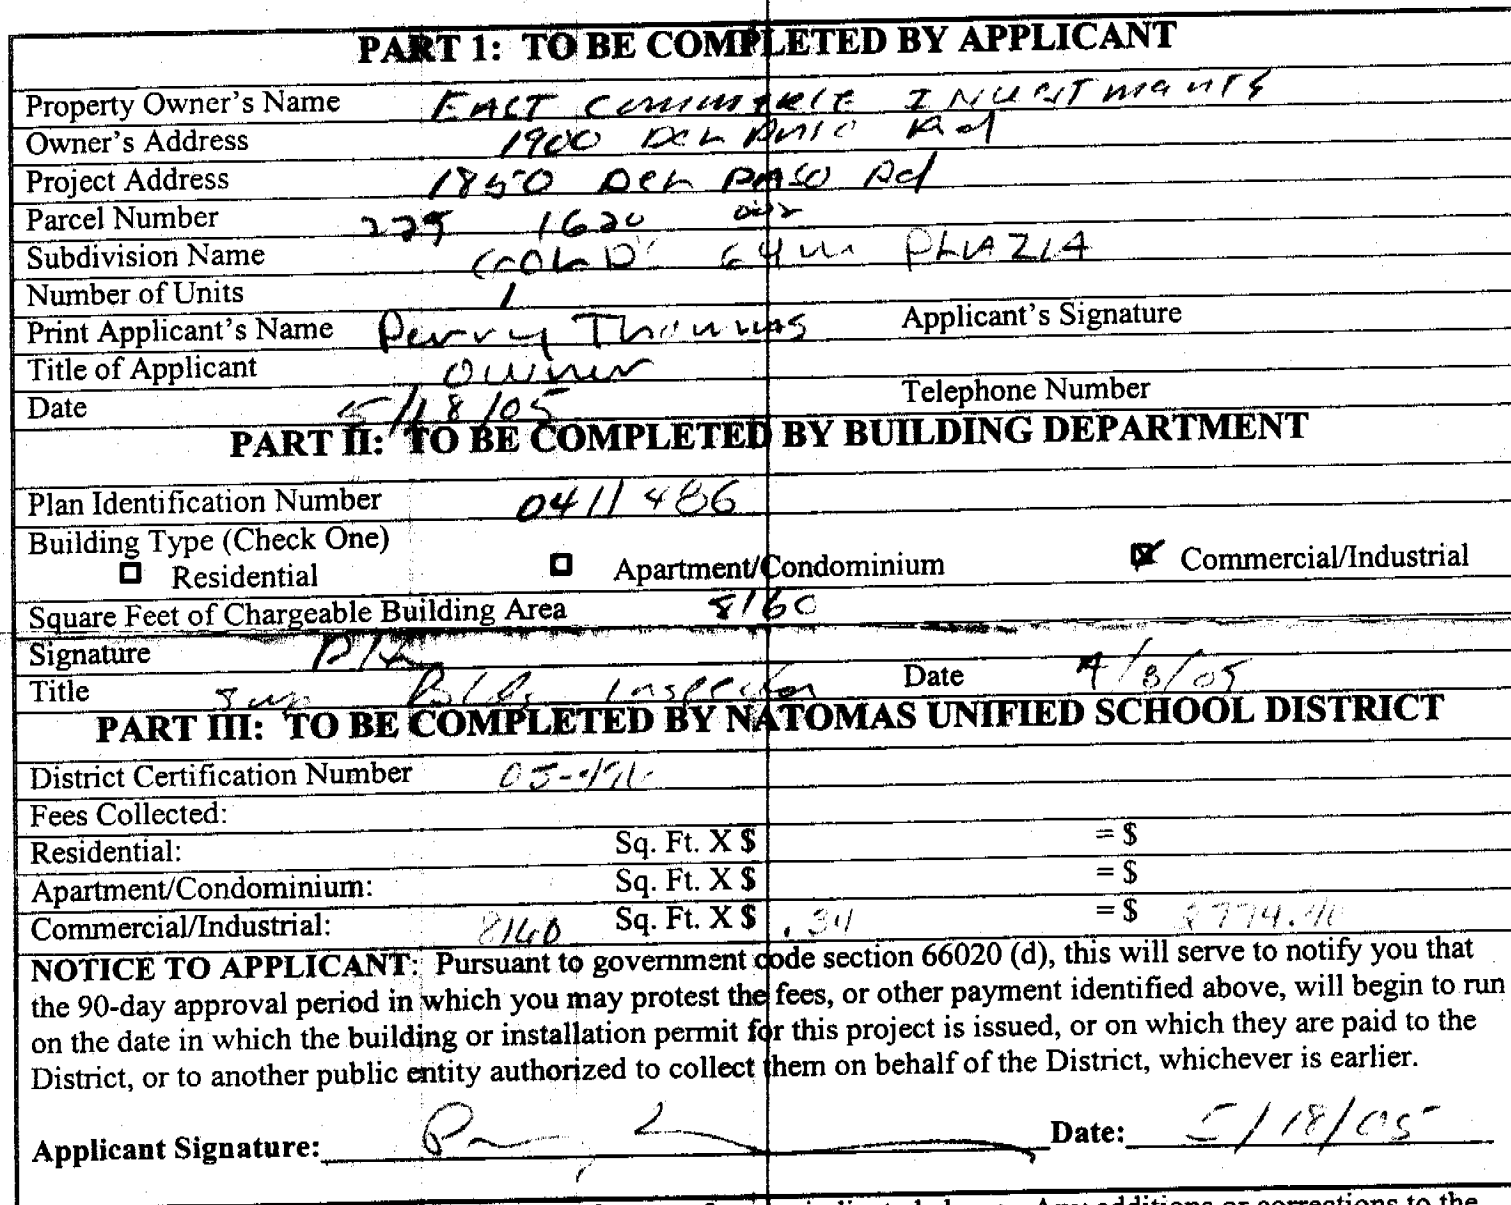 PART 1: TO BE COMPLETED BY APPLICANT
Property Owner's Name EAST COMMERCE INVESTMENTS
Owner's Address 1900 DEL PASO Rd
Project Address 1850 DEL PASO Rd
Parcel Number 225 1620 002
Subdivision Name GOLD'S GYM PLAZA
Number of Units 1
Print Applicant's Name Perry Thomas Applicant's Signature
Title of Applicant Owner
Telephone Number
Date 5/18/05
PART II: TO BE COMPLETED BY BUILDING DEPARTMENT
Plan Identification Number 0411486
Building Type (Check One)
Residential Apartment/Condominium Commercial/Industrial
Square Feet of Chargeable Building Area 8160
Signature
Title Sup Bldg Inspector Date 4/8/05
PART III: TO BE COMPLETED BY NATOMAS UNIFIED SCHOOL DISTRICT
District Certification Number 05-
Fees Collected:
Residential: Sq. Ft. X $ = $
Apartment/Condominium: Sq. Ft. X $ = $
Commercial/Industrial: 8160 Sq. Ft. X $ .34 = $ 2774.40
NOTICE TO APPLICANT: Pursuant to government code section 66020 (d), this will serve to notify you that
the 90-day approval period in which you may protest the fees, or other payment identified above, will begin to run
on the date in which the building or installation permit for this project is issued, or on which they are paid to the
District, or to another public entity authorized to collect them on behalf of the District, whichever is earlier.
Applicant Signature: Date: 5/18/05
additions or corrections to the